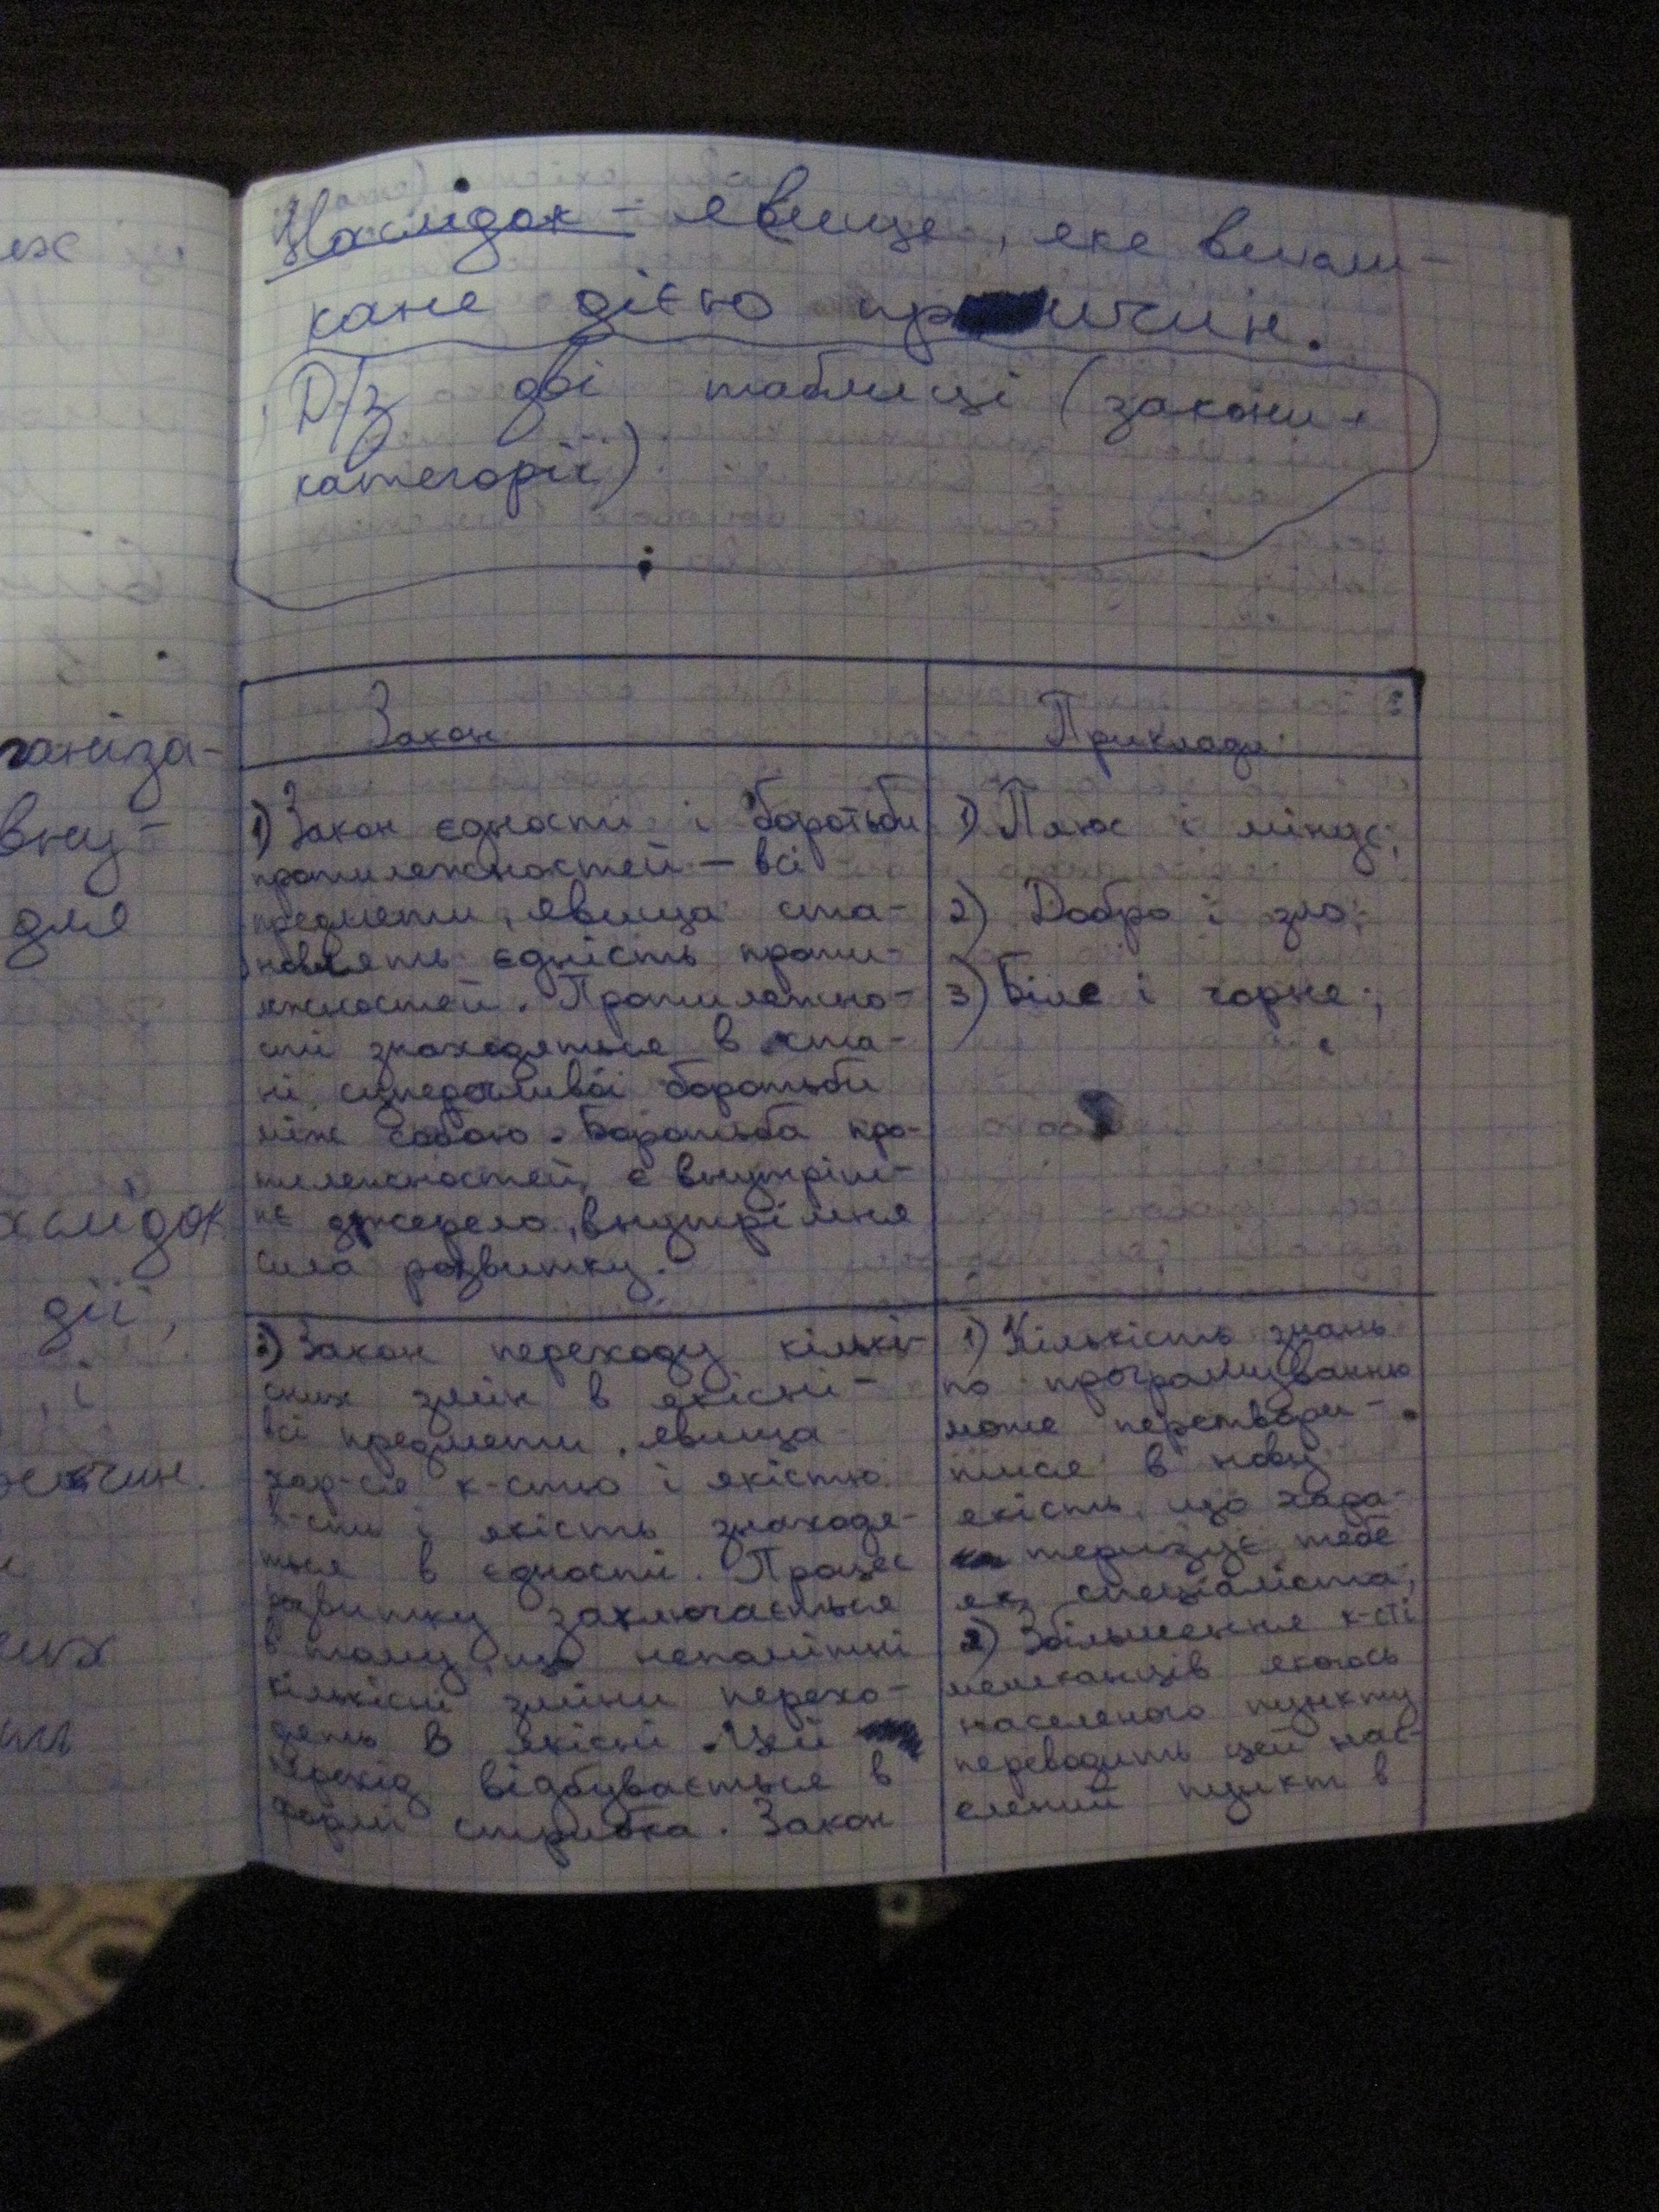 Наслідок – явище, яке викли-
кане дією причин.
Д/з дві таблиці (закони і
категорії)
Закон
Приклади
1) Закон єдності і боротьби
протилежностей – всі
предмети, явища ста-
новлять єдність проти-
лежностей. Протилежно-
сті знаходяться в ста-
ні суперечливої боротьби
між собою. Боротьба про-
тилежностей є внутріш-
нє джерело, внутрішня
сила розвитку.
1) Плюс і мінус;
2) Добро і зло;
3) Біле і чорне;
2) Закон переходу кількі-
сних змін в якісні –
всі предмети, явища
хар-ся к-стю і якістю
к-сть і якість знаходя-
ться в єдності. Процес
розвитку заключається
в тому, що непомітні
кількісні зміни перехо-
дять в якісні. Цей
перехід відбувається в
формі стрибка. Закон
1) Кількість знань
по програмуванню
може перетвори-
тися в нову
якість, що хара-
теризує тебе
як спеціаліста;
2) Збільшення к-сті
мешканців якогось
населеного пункту
переводить цей нас-
елений пункт в
ганіза-
вну-
для
слідок
дії,
, і
чин.